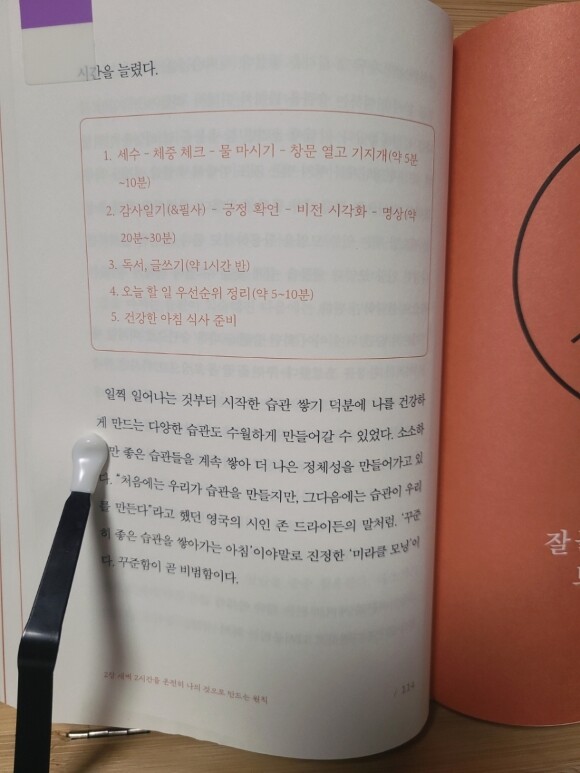 시간을 늘렸다.
1. 세수 – 체중 체크 – 물 마시기 – 창문 열고 기지개(약 5분
~10분)
2. 감사일기(&필사) – 긍정 확언 – 비전 시각화 – 명상(약
20분~30분)
3. 독서, 글쓰기(약 1시간 반)
4. 오늘 할 일 우선순위 정리(약 5~10분)
5. 건강한 아침 식사 준비
일찍 일어나는 것부터 시작한 습관 쌓기 덕분에 나를 건강하
게 만드는 다양한 습관도 수월하게 만들어갈 수 있었다. 소소하
만 좋은 습관들을 계속 쌓아 더 나은 정체성을 만들어가고 있
다. “처음에는 우리가 습관을 만들지만, 그다음에는 습관이 우리
를 만든다”라고 했던 영국의 시인 존 드라이든의 말처럼. ‘꾸준
히 좋은 습관을 쌓아가는 아침’이야말로 진정한 ‘미라클 모닝’이
다. 꾸준함이 곧 비범함이다.
2장 새벽 2시간을 온전히 나의 것으로 만드는 원칙
잘